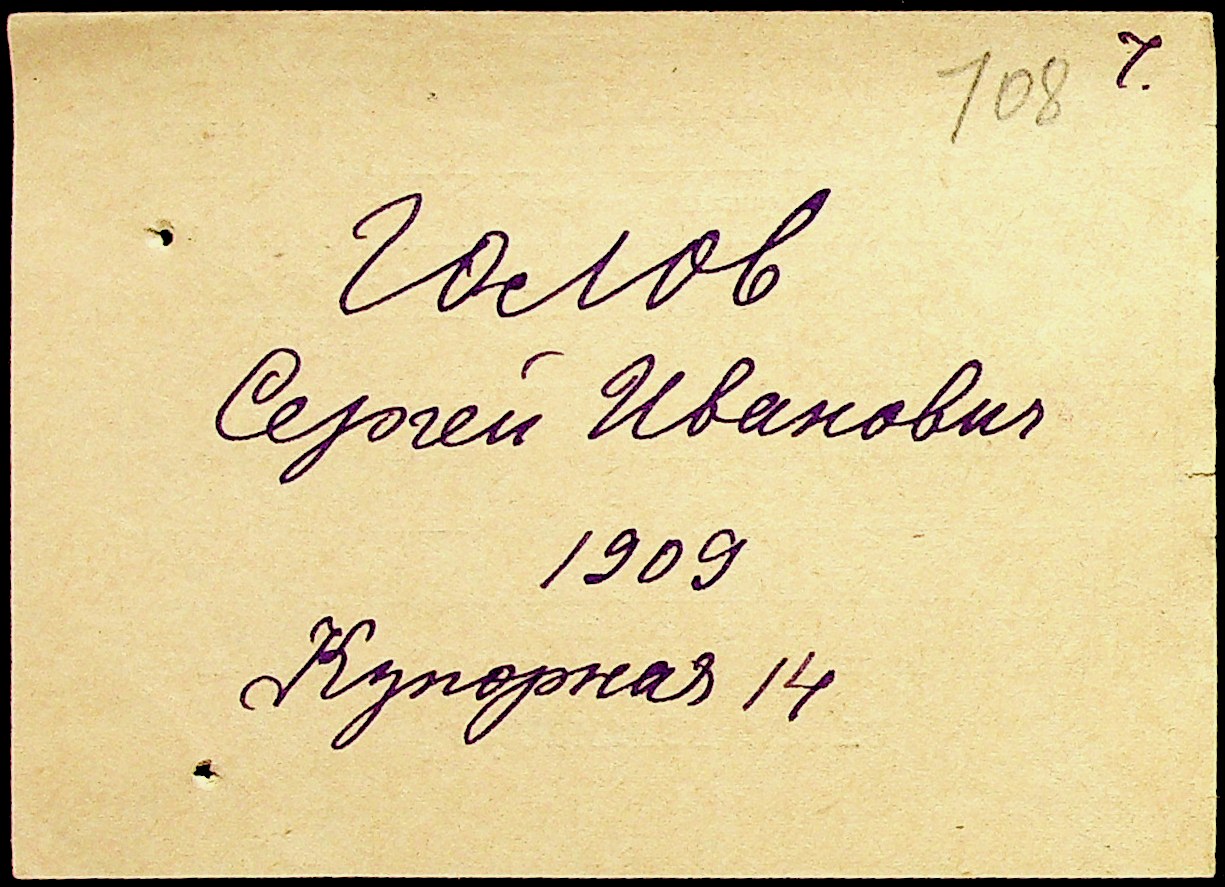 108 7.
Гослов
Сергей Иванович
1909
Купорная 14